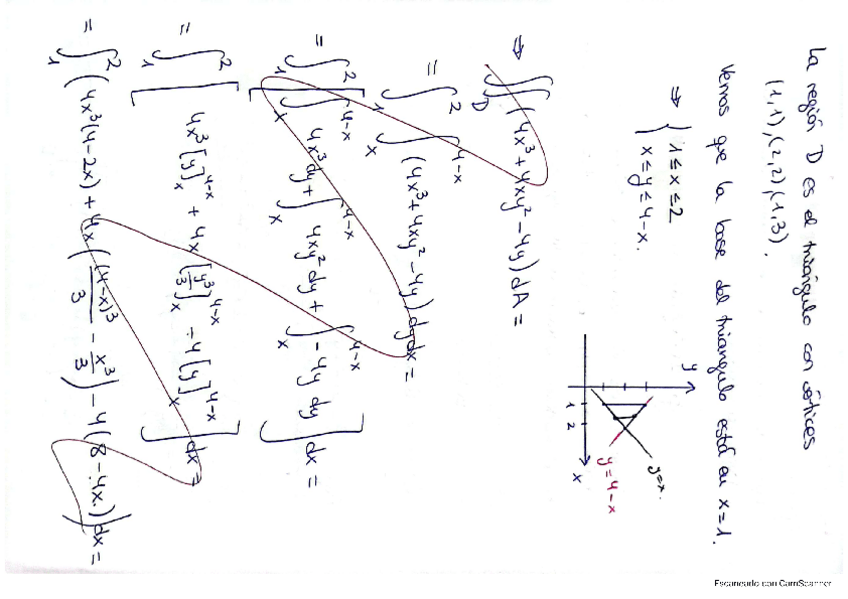 La región D es el triángulo con vértices
(1,1),(2,2),(1,3).
Vemos que la base del triangulo está en x=1.
⇒ { 1≤x≤2
x≤y≤4-x.
y
1
2
x
y=x.
y=4-x
⇒ ∬_D (4x³+4xy²-4y) dA =
= ∫_1^2 ∫_x^{4-x} (4x³+4xy²-4y) dy dx =
= ∫_1^2 [ ∫_x^{4-x} 4x³dy + ∫_x^{4-x} 4xy² dy + ∫_x^{4-x} -4y dy ] dx =
= ∫_1^2 [ 4x³[y]_x^{4-x} + 4x[y³/3]_x^{4-x} - 4[y]_x^{4-x} ] dx =
= ∫_1^2 (4x³(4-2x) + 4x((4-x)³/3 - x³/3) - 4(8-4x)) dx =
Escaneado con CamScanner